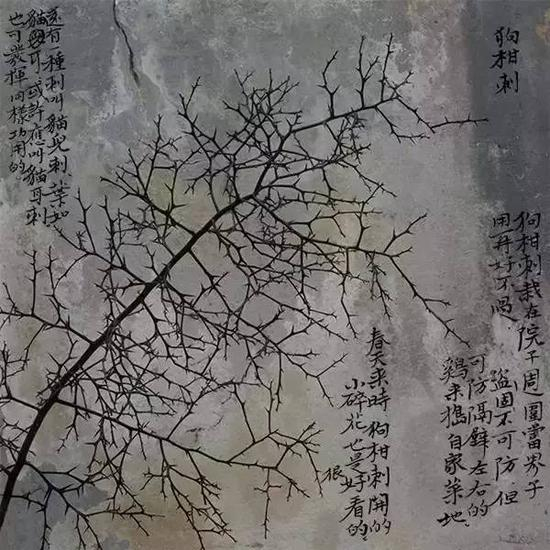 狗柑刺
狗柑刺栽在院子周圍當界子
用再好不過
盜固不可防但
可防隔壁左右的
鷄來搗自家菜地
春天來時狗柑刺開的
小碎花也是好看的
很
還有一種刺叫貓兒刺、葉如
貓
可或許應叫貓耳刺
也可發揮同樣功用的